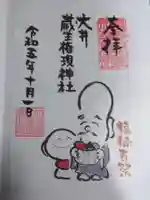 奉拝
大井
蔵王権現神社
令和五年十月一日